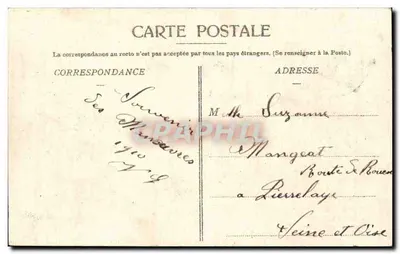 CARTE POSTALE
La correspondance au recto n'est pas acceptée par tous les pays étrangers. (Se renseigner à la Poste.)
CORRESPONDANCE
Souvenir
des Manœuvres
1910
ADRESSE
Mlle Suzanne
Mangeat
Route de Rouen
a Pierrelaye
Seine et Oise